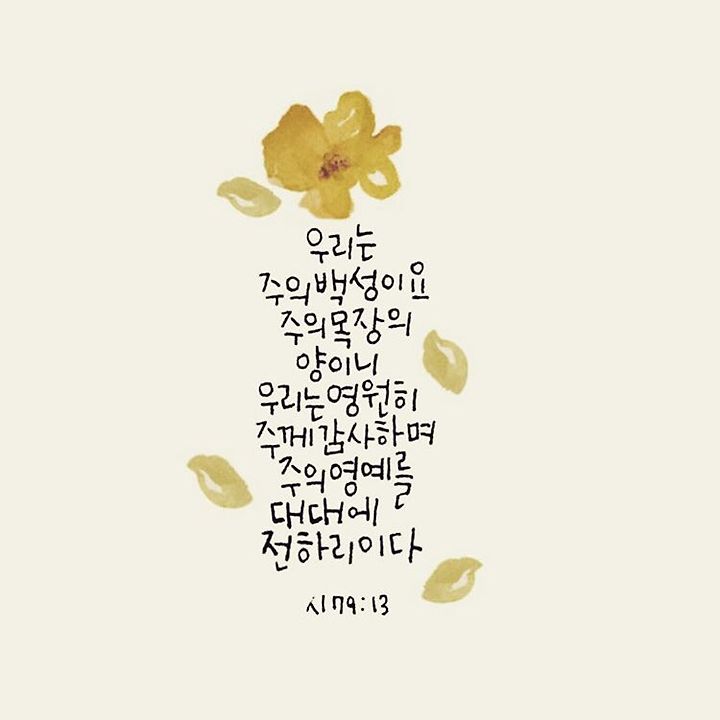 우리는
주의백성이요
주의목장의
양이니
우리는영원히
주께감사하며
주의영예를
대대에
전하리이다
시79:13